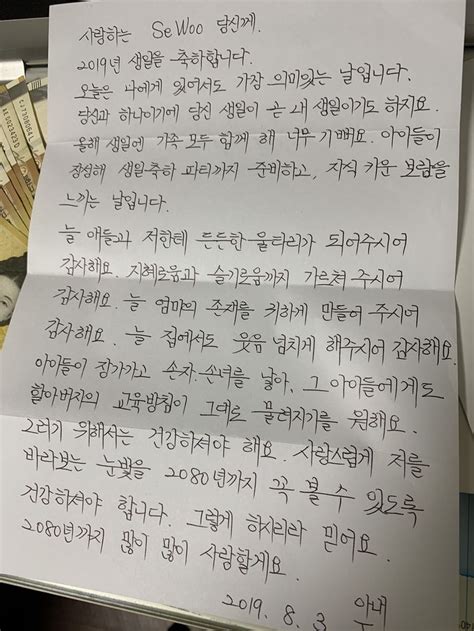 사랑하는 Se Woo 당신께.
2019년 생일을 축하합니다.
오늘은 나에게 있어서도 가장 의미있는 날입니다.
당신과 하나이기에 당신 생일이 곧 내 생일이기도 하지요.
올해 생일엔 가족 모두 함께 해 너무 기뻐요. 아이들이
장성해 생일축하 파티까지 준비하고, 자식 키운 보람을
느끼는 날입니다.
늘 애들과 저한테 든든한 울타리가 되어주시어
감사해요. 지혜로움과 슬기로움까지 가르쳐 주시어
감사해요. 늘 엄마의 존재를 귀하게 만들어 주시어
감사해요. 늘 집에서도 웃음 넘치게 해주시어 감사해요.
아이들이 장가가고 손자·손녀를 낳아, 그 아이들에게도
할아버지의 교육방침이 그대로 물려지기를 원해요.
그러기 위해서는 건강하셔야 해요. 사랑스럽게 저를
바라보는 눈빛을 2080년까지 꼭 볼 수 있도록
건강하셔야 합니다. 그렇게 하시리라 믿어요.
2080년까지 많이 많이 사랑할게요.
2019. 8. 3 아내